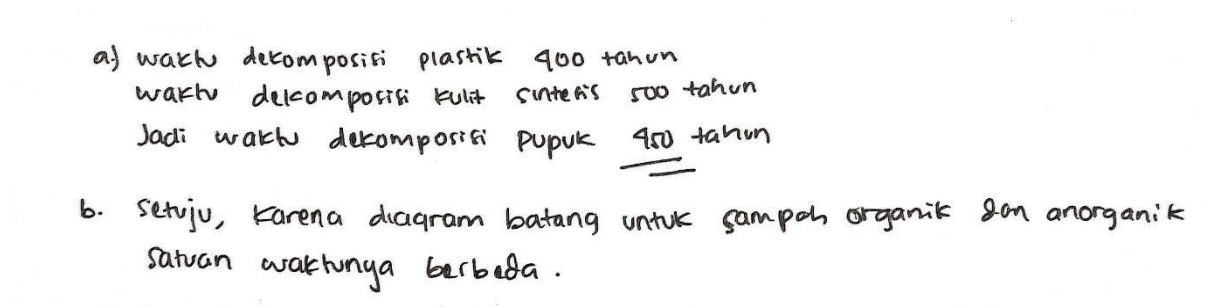 a) waktu dekomposisi plastik 400 tahun
waktu dekomposisi kulit sintesis 500 tahun
Jadi waktu dekomposisi pupuk 450 tahun
b. Setuju, karena diagram batang untuk sampah organik dan anorganik
satuan waktunya berbeda.